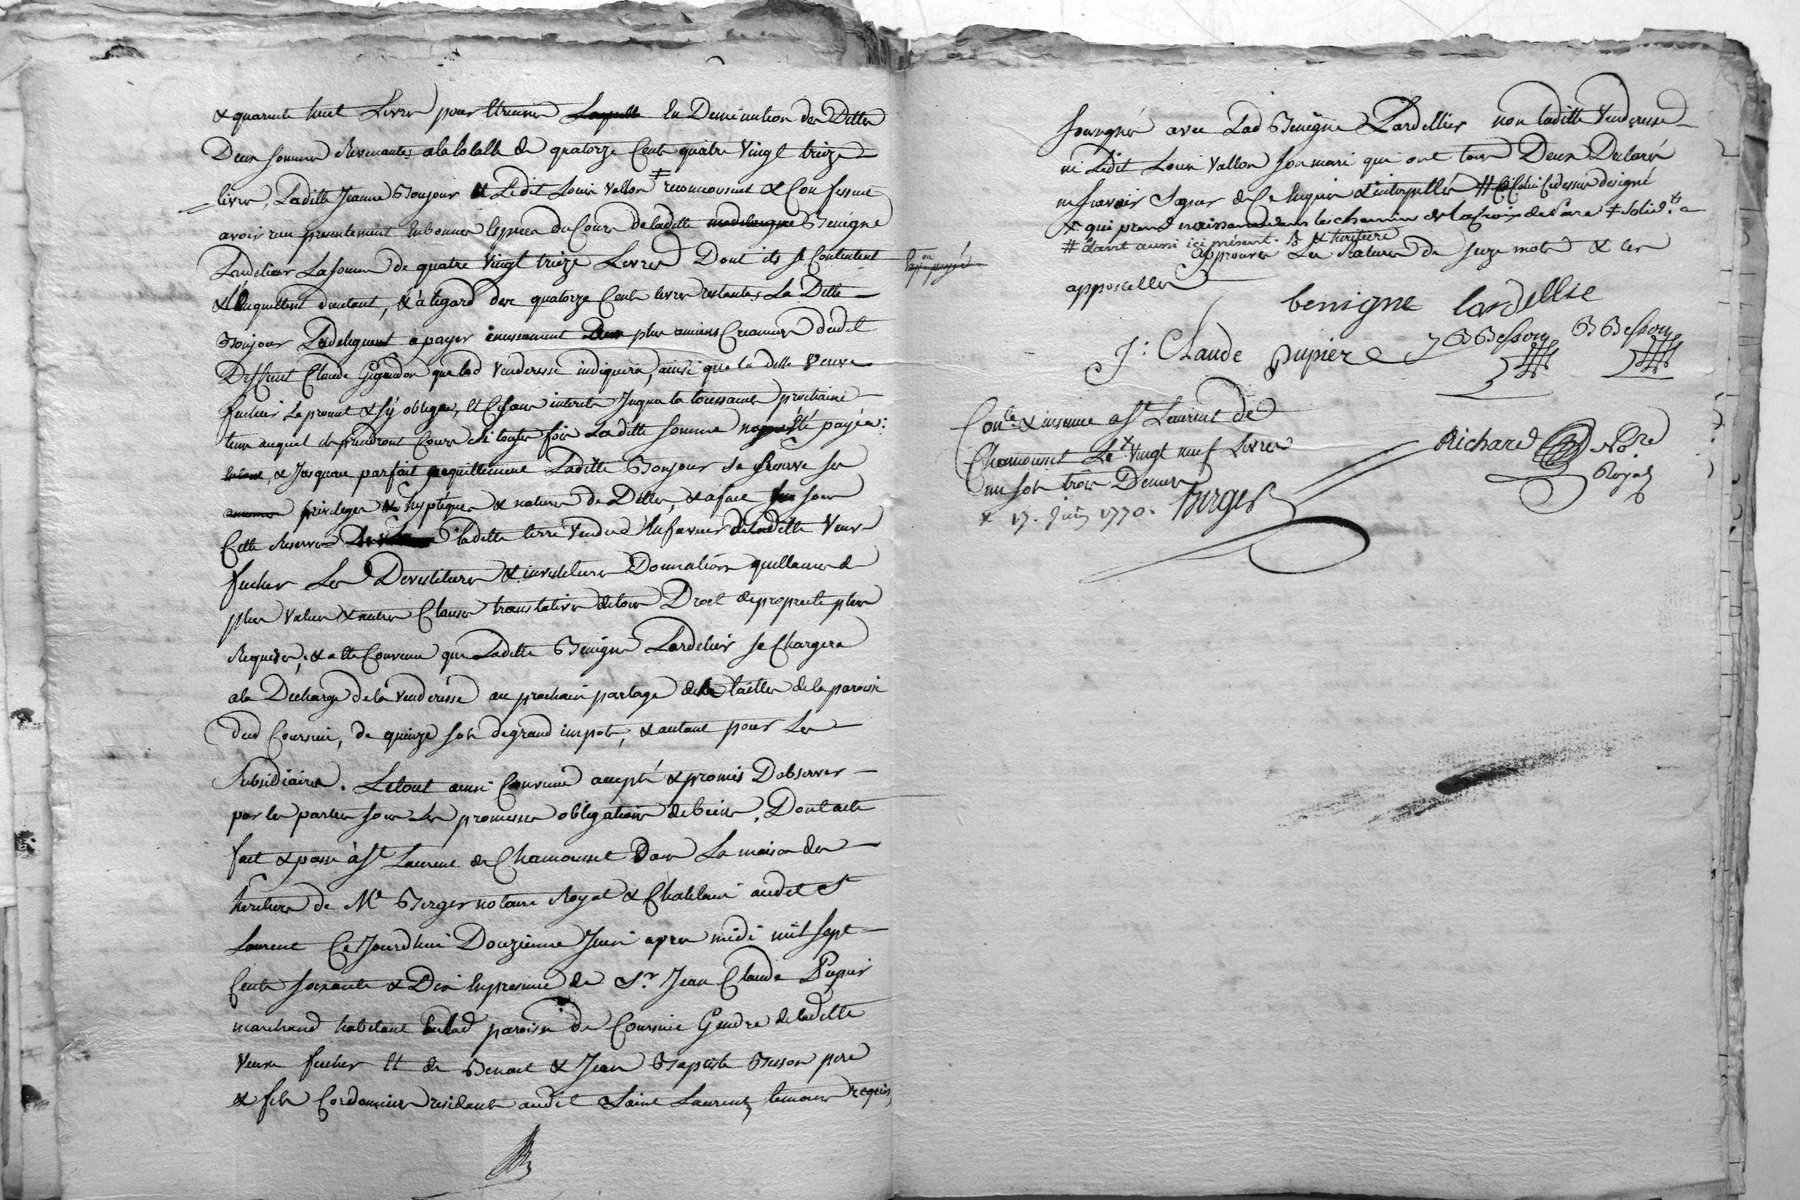 & quarante huit Livres pour Etrennes Laquelle En Deminution des Dettes
Deux sommes Revenantes ala totalle de quatorze Cents quatre Vingt treize
livres, Laditte Jeanne Bonjour & Ledit Louis Vallon ‡ reconnoissent & Confessent
avoir reçu presentement En bonnes Especes du Cours de laditte madelaigne Benigne
Lardelier La somme de quatre Vingt treize Livres Dont ils se Contentent
& l'Enquittent d'autant, & à l'egard des quatorze Cents livres restantes La Ditte
Bonjour Ladeleguent à payer aux plus anciens Creanciers dudit
Deffunt Claude que lad Venderesse indiquera, ainsi que la ditte Veuve
fucher Le promet & s'y oblige, Et Ce sans interets Jusqua la toussaint prochaine
tems auquel ils prendront Cours si toutes fois Laditte somme n'a été payée:
& Jusques au parfait acquittement Laditte Bonjour se Reserve ses
privileges & hypteques & nature de Dettes, & a face sous
Cette Reserve laditte terre Vendue En faveur de laditte Veuve
fucher Les Devestitures & investitures Donnations quellames de
plus Values & autres Clauses translatives de tous Droits de proprieté plus
Requises, & a ete Convenu que Laditte Benigne Lardelier se Chargera
ala Decharge de la Venderesse au prochain partage des tailles de la paroisse
dud Coursieu, de quinze sols de grand impots, & autant pour Les
Subsidiaires. Le tout ainsi Convenu accepté & promis D'observer
par les parties sous Les promesses obligations de biens, Dont acte
fait & passé à St Laurent de Chamousset Dans La maison des
heritiers de Me Berger notaire Royal & Chatelain audit St
Laurent Ce Jourdhui Douzieme Juin apres midi mil sept
Cents soixante & Dix En presence de Sr Jean Claude Pupier
marchand habitant en lad paroisse de Coursieu Gendre de laditte
Veuve fucher Et de Benoit & Jean Baptiste Besson pere
& fils Cordonniers residants audit Saint Laurent, temoins requis
soussignés avec Lad Benigne Lardellier non laditte Venderesse
ni Ledit Louis Vallon son mari qui ont tous Deux Declaré
ne sçavoir Signer de Ce Enquis & interpellés # Ci dessus designé
& qui prend naissance dans le chemin de la Croix de
# étant aussi ici présent.
approuvés Les Ratures de seize mots & les
appostelles
benigne lardellie
J: Claude pupier
B Besson B Besson
Conlé & insinué a St Laurent de
Chamousset Le Vingt neuf Livres
un sols trois Deniers
17. Juin 1770. Berger
Richard Nore
Royal